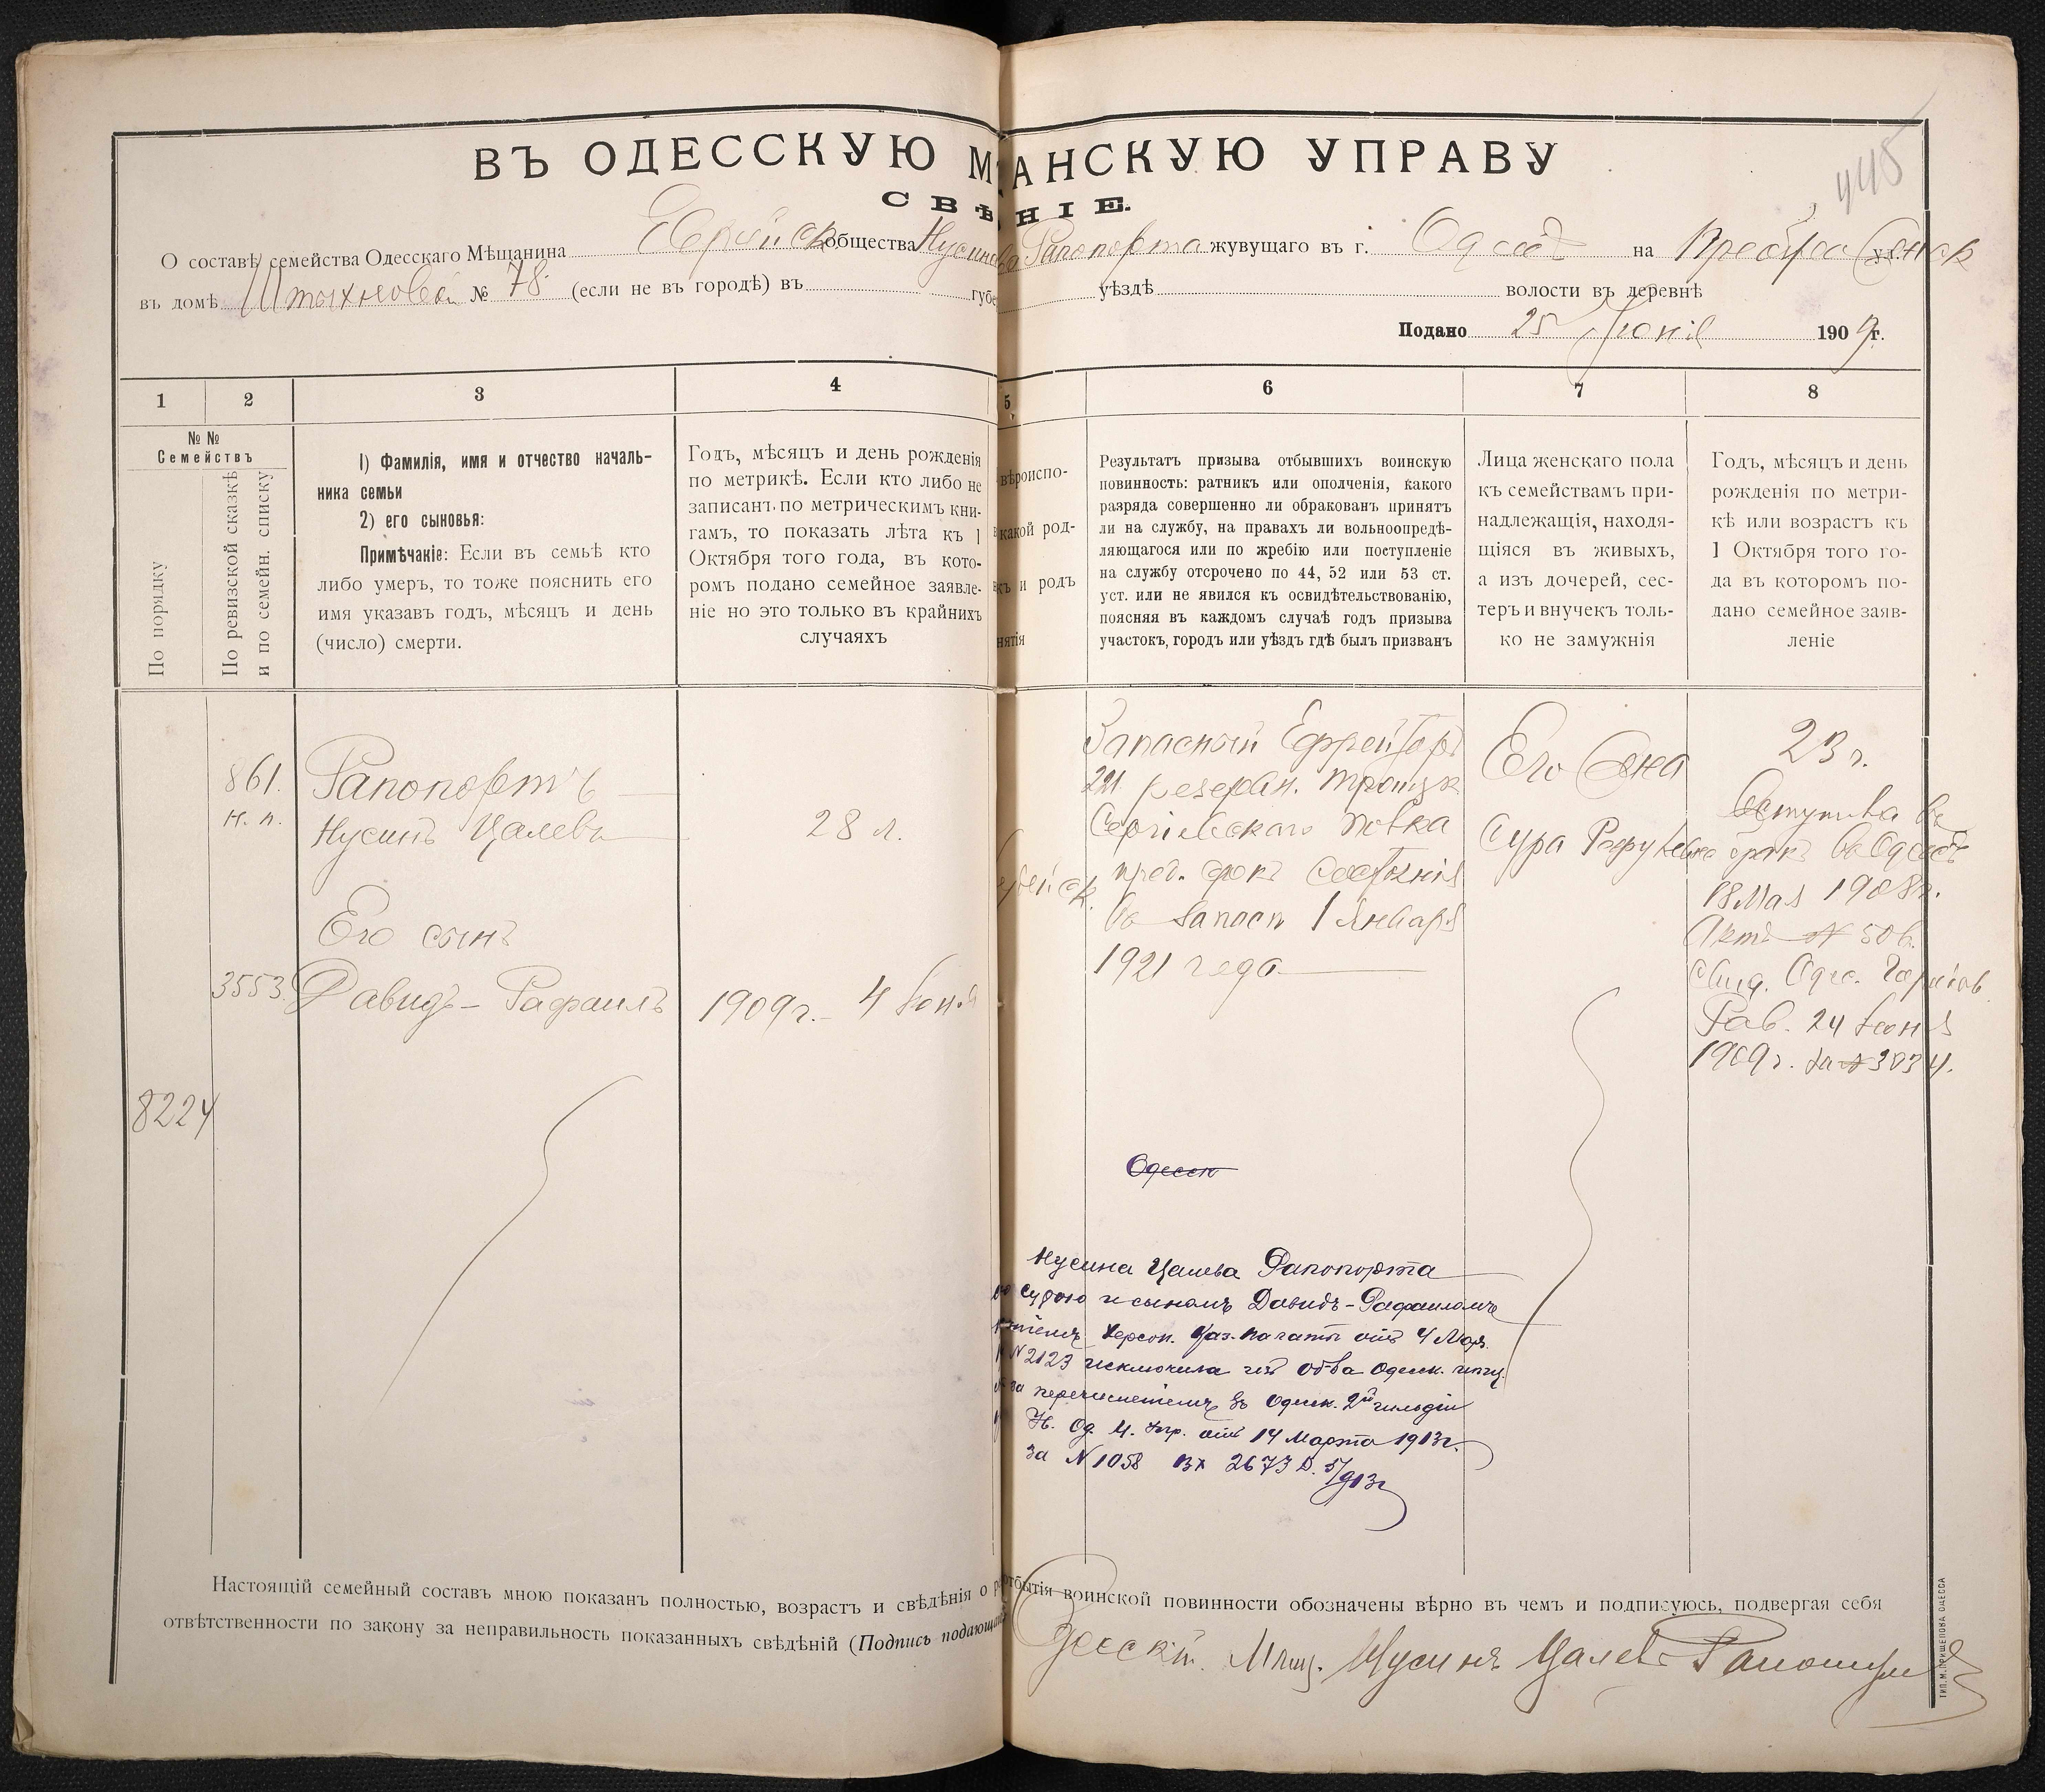 445
ВЪ ОДЕССКУЮ М АНСКУЮ УПРАВУ
СВѢ НІЕ.
О составѣ семейства Одесскаго Мѣщанина Еврейск общества Нусина Рапопорта жувущаго въ г. Одессѣ на ул.
въ домѣ № 78 (если не въ городѣ) въ губе уѣздѣ волости въ деревнѣ
Подано 25 Іюнія 1909 г.
1 2 3 4 5 6 7 8
№№
Семействъ
По порядку
По ревизской сказкѣ
и по семейн. списку
1) Фамилія, имя и отчество началь-
ника семьи
2) его сыновья:
Примѣчакіе: Если въ семьѣ кто
либо умеръ, то тоже пояснить его
имя указавъ годъ, мѣсяцъ и день
(число) смерти.
Годъ, мѣсяцъ и день рожденія
по метрикѣ. Если кто либо не
записанъ по метрическимъ кни-
гамъ, то показать лѣта къ 1
Октября того года, въ кото-
ромъ подано семейное заявле-
ніе но это только въ крайнихъ
случаяхъ
вѣроиспо-
какой род-
и родъ
нятія
Результатъ призыва отбывшихъ воинскую
повинность: ратникъ или ополченія, какого
разряда совершенно ли обракованъ принятъ
ли на службу, на правахъ ли вольноопредѣ-
ляющагося или по жребію или поступленіе
на службу отсрочено по 44, 52 или 53 ст.
уст. или не явился къ освидѣтельствованію,
поясняя въ каждомъ случаѣ годъ призыва
участокъ, городъ или уѣздъ гдѣ былъ призванъ
Лица женскаго пола
къ семействамъ при-
надлежащія, находя-
щіяся въ живыхъ,
а изъ дочерей, сес-
теръ и внучекъ толь-
ко не замужнія
Годъ, мѣсяцъ и день
рожденія по метри-
кѣ или возрастъ къ
1 Октября того го-
да въ которомъ по-
дано семейное заяв-
леніе
861.
н. п.
Рапопортъ
Нусинъ Цалевъ
28 л.
Его сынъ
3553. Давидъ-Рафаилъ
1909 г. 4 Іюня
8224
Запасный Ефрейторъ
221 резервн. Троицк
Сергіевскаго полка
пред. срок состоянія
в запасѣ 1 Января
1921 года
Его Жена
Сура
23 г.
Вступила въ
бракъ въ Одессѣ
18 Мая 1908 г.
Актъ № 50 б.
Свид. Одес. Город.
Рав. 24 Іюня
1909 г. за № 3034.
Одесск
Нусина Цалева Рапопорта
Сурою и сыномъ Давидъ-Рафаиломъ
Херсон. Каз. Палаты отъ 4 Мар.
№ 2123 исключила изъ об-ва Одесск. мѣщ.
за перечисленіемъ въ Одесск. 2й гильдіи
Ув. Од. К. Упр. отъ 14 Марта 1913 г.
за № 1058 вх 2673 D. 5/913 г
Настоящій семейный составъ мною показанъ полностью, возрастъ и свѣдѣнія о отбытія воинской повинности обозначены вѣрно въ чемъ и подписуюсь, подвергая себя
отвѣтственности по закону за неправильность показанныхъ свѣдѣній (Подпись подающаго
Одесскій Мѣщ. Нусинъ Цалевъ Рапопортъ
ТИП. М. ПРИЩЕПОВА ОДЕССА